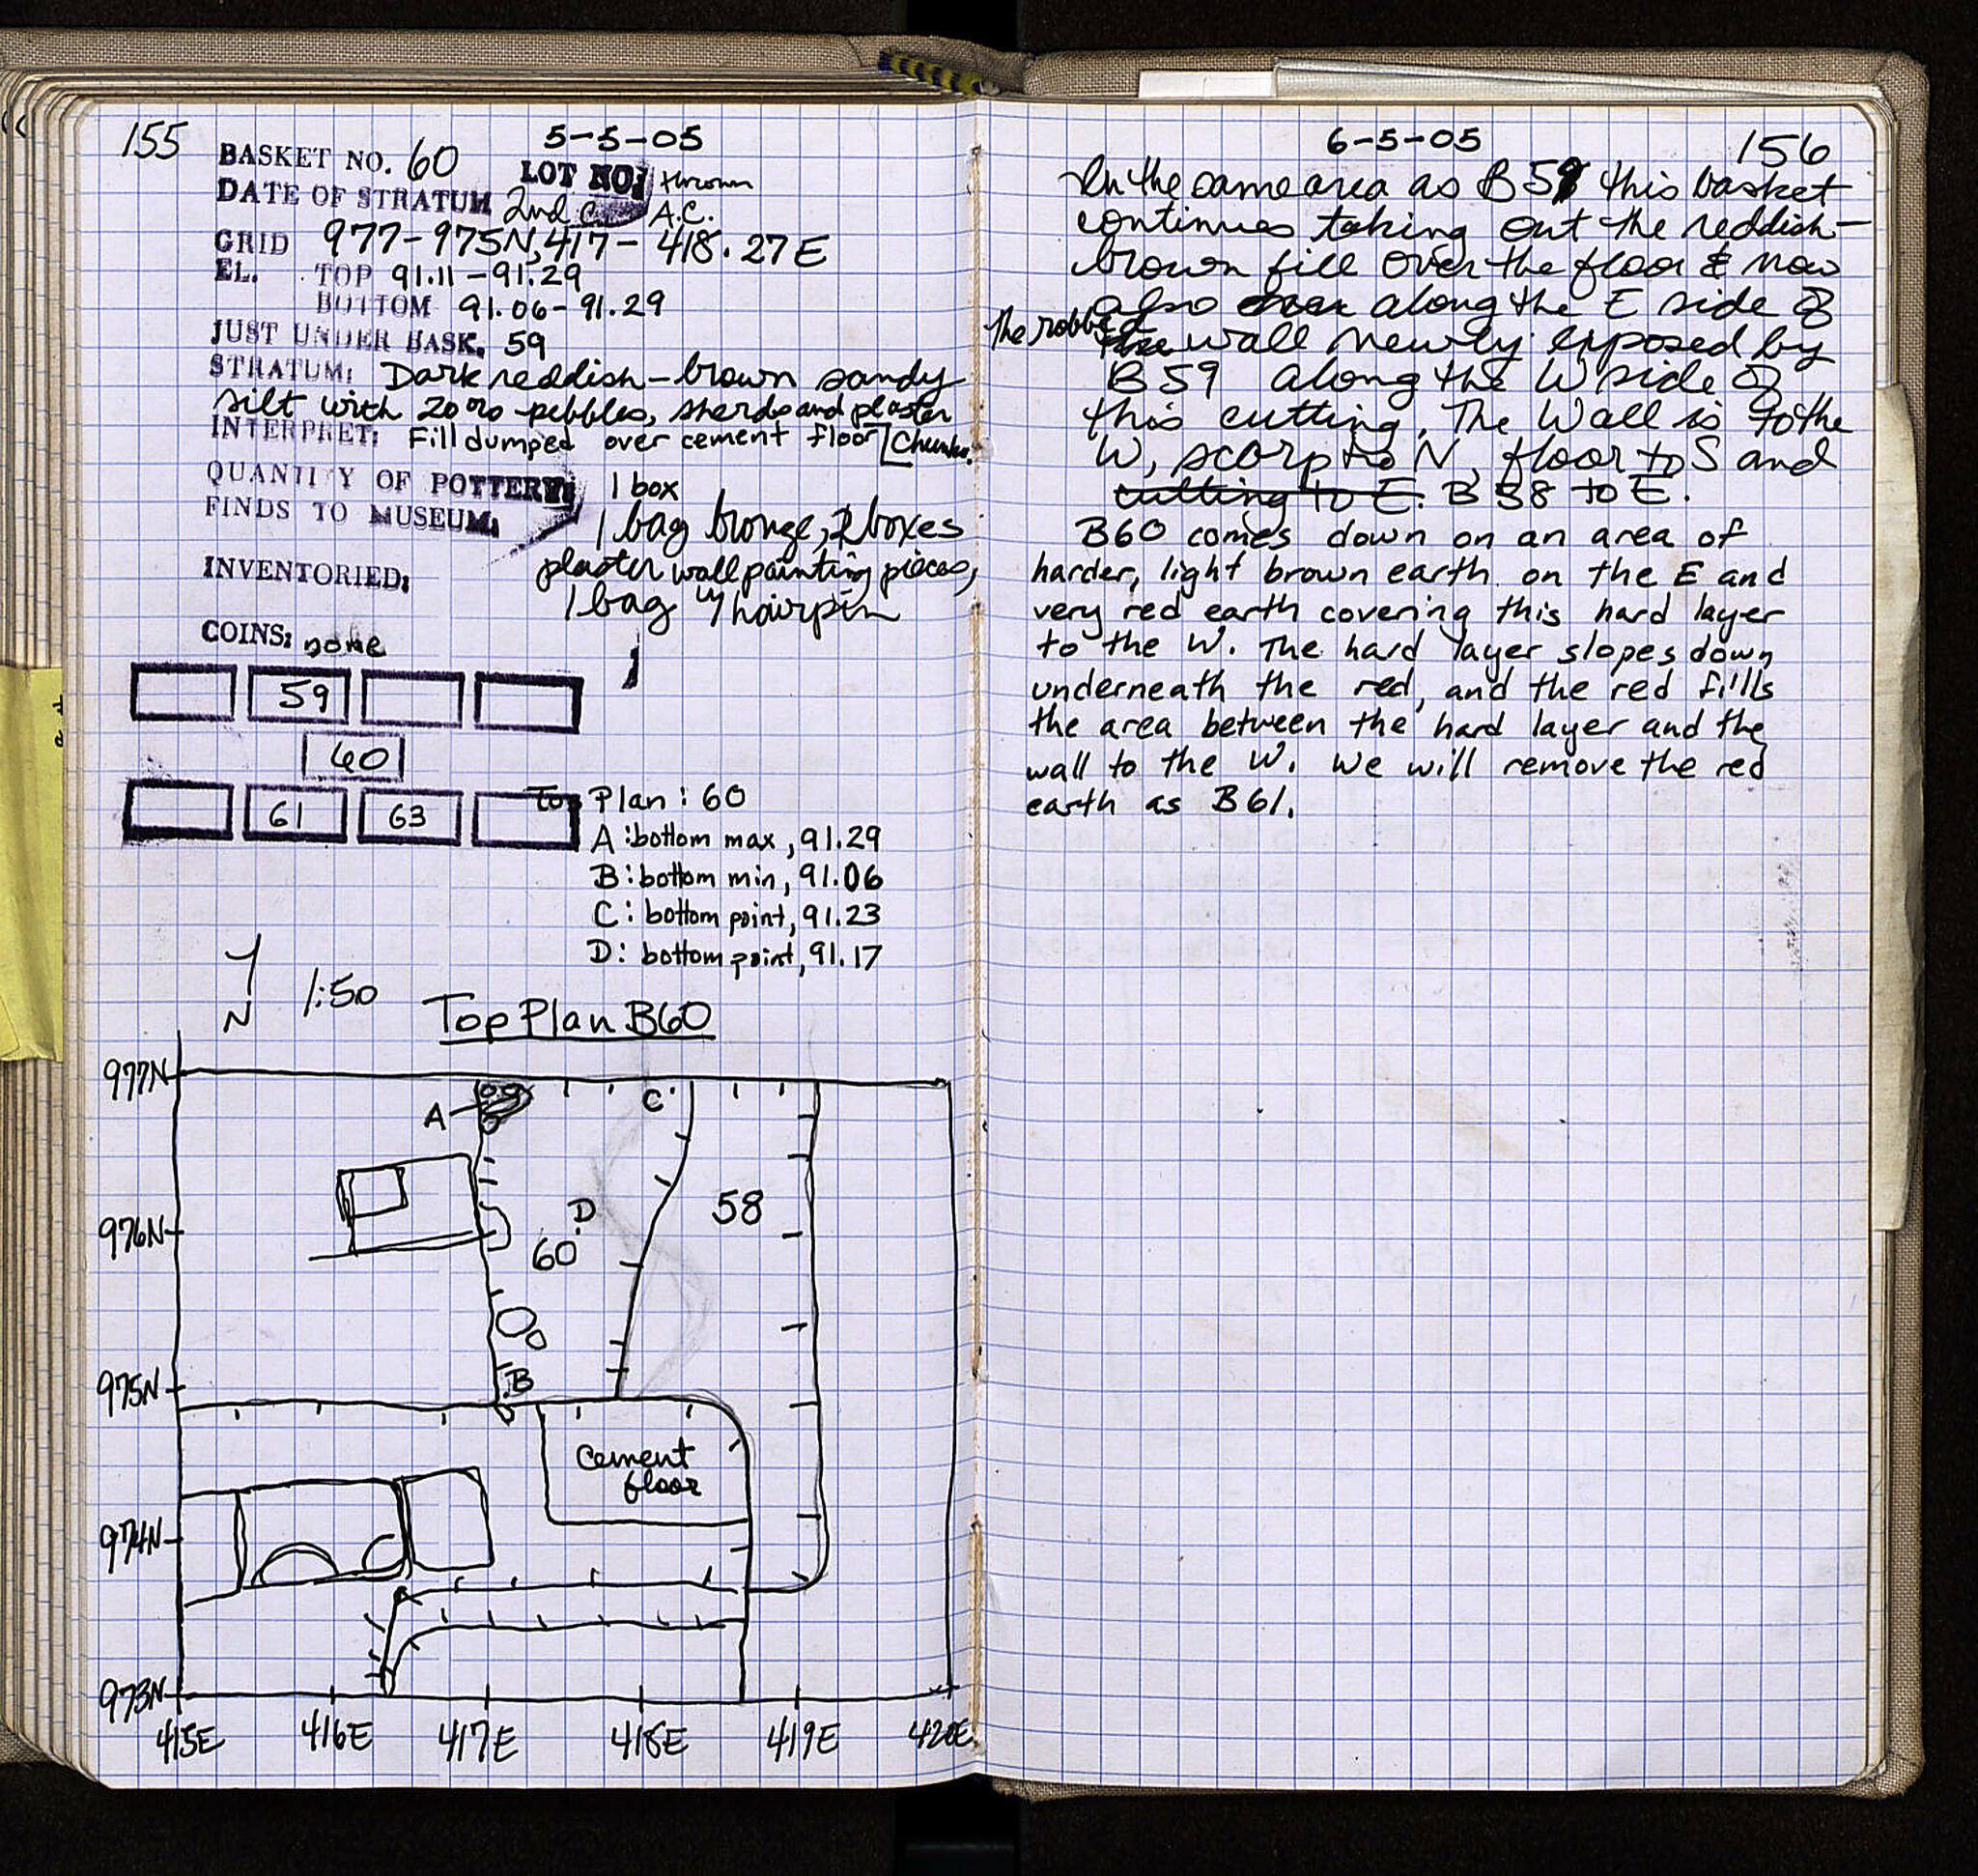 155
5-5-05
BASKET NO. 60
LOT NO: thrown
DATE OF STRATUM 2nd c. A.C.
GRID 977-975N, 417-418.27E
EL. TOP 91.11-91.29
BOTTOM 91.06-91.29
JUST UNDER BASK. 59
STRATUM: Dark reddish-brown sandy
silt with 20% pebbles, sherds and plaster
INTERPRET: Fill dumped over cement floor [chunks.
QUANTITY OF POTTERY: 1 box
FINDS TO MUSEUM: 1 bag bronze, 2 boxes
plaster wall painting pieces,
INVENTORIED:
1 bag w/ hairpin
COINS: none
59
60
61 63
Top Plan: 60
A: bottom max, 91.29
B: bottom min, 91.06
C: bottom point, 91.23
D: bottom point, 91.17
N 1:50
Top Plan B60
977N
A
C
976N
D
60
58
975N
B
cement
floor
974N
973N
415E 416E 417E 418E 419E 420E
6-5-05
156
In the same area as B59 this basket
continues taking out the reddish-
brown fill over the floor & now
also along the E side of
the robbed wall newly exposed by
B59 along the W side of
this cutting. The Wall is to the
W, scarp to N, floor to S and
cutting to E. B58 to E.
B60 comes down on an area of
harder, light brown earth on the E and
very red earth covering this hard layer
to the W. The hard layer slopes down
underneath the red, and the red fills
the area between the hard layer and the
wall to the W. We will remove the red
earth as B61.